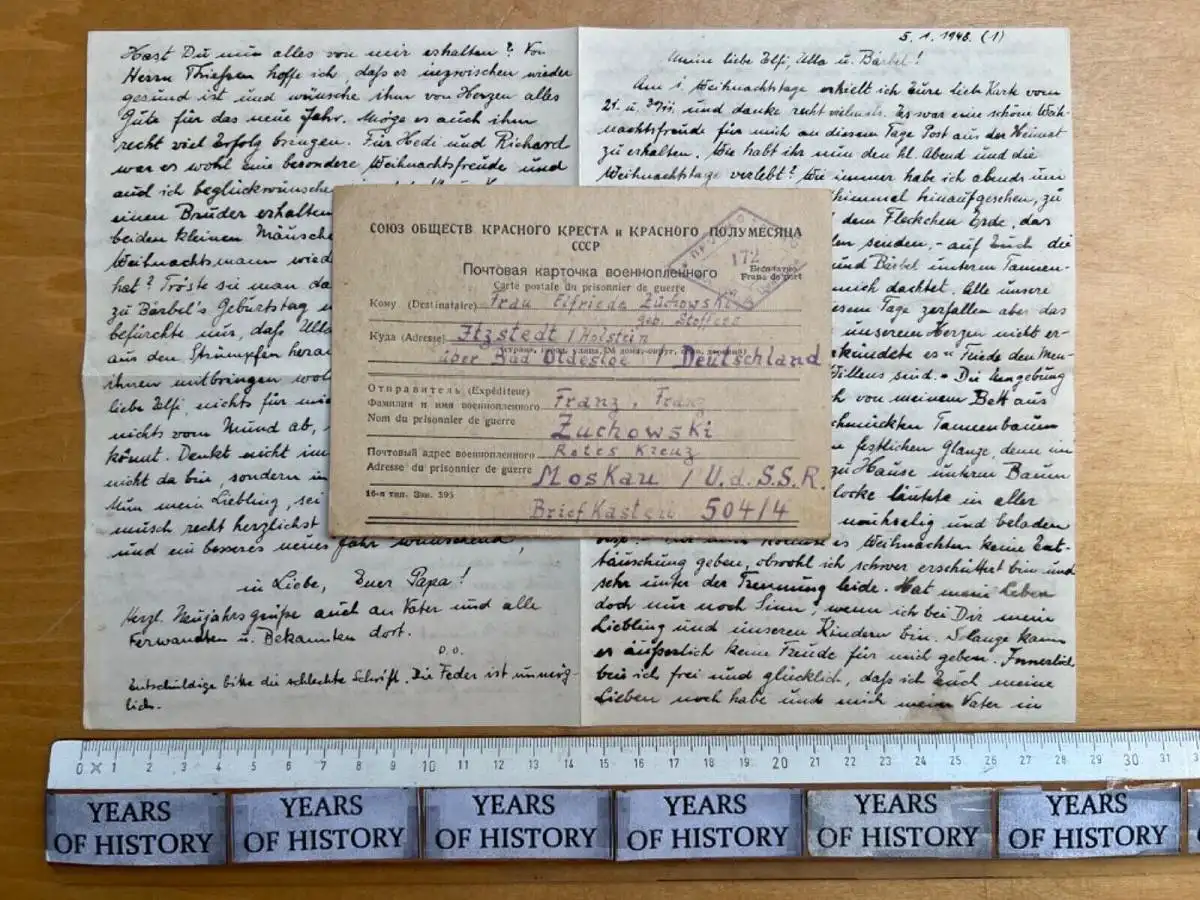 Hast Du nun alles von mir erhalten? Von
Herrn Thießen hoffe ich, daß es inzwischen wieder
gesund ist und wünsche ihm von Herzen alles
Gute für das neue Jahr. Möge es auch ihm
recht viel Erfolg bringen. Für Hedi und Richard
war es wohl eine besondere Weihnachtsfreude und
auch ich beglückwünsche
einen Bruder erhalten
beiden kleinen Mäusche
Weihnachtsmann wied
hat? Tröste sie man da
zu Bärbel's Geburtstag
befürchte nur, daß Ulla
aus den Strümpfen herau
ihnen mitbringen wol
liebe Elfi, nichts für mi
nichts vom Mund ab,
könnt. Denkt nicht im
nicht da bin, sondern in
Nun mein Liebling, sei
misch recht herzlichst
und ein besseres neues Jahr wünschend,
in Liebe, Euer Papa!
Herzl. Neujahrsgrüße auch an Vater und alle
Verwandten u. Bekannten dort.
D.O.
Entschuldige bitte die schlechte Schrift. Die Feder ist unmög-
lich.
5.1.1948. (1)
Meine liebe Elfi, Ulla u. Bärbel!
Am 1. Weihnachtstage erhielt ich Eure liebe Karte vom
21. u. und danke recht vielmals. Es war eine schöne Weih-
nachtsfreude für mich an diesem Tage Post aus der Heimat
zu erhalten. Wie habt ihr nun den hl. Abend und die
Weihnachtstage verlebt? Wie immer habe ich abends um
Himmel hinaufgesehen, zu
dem Fleckchen Erde, das
en senden, - auf Euch die
und Bärbel unterm Tannen-
mich dachtet. Alle unsere
esem Tage zerfallen aber das
unserem Herzen nicht er-
kündete es "Friede den Men-
Willens sind." Die Umgebung
h von meinem Bett aus
chmückten Tannenbaum
festlichen Glanze, denn im
zu Hause unterm Baum
locke läutete in aller
mühselig und beladen
es Weihnachten keine Ent-
täuschung geben, obwohl ich schwer erschüttert bin und
sehr unter der Trennung leide. Hat mein Leben
doch nur noch Sinn, wenn ich bei Dir mein
Liebling und unseren Kindern bin. Solange kann
es äußerlich keine Freude für mich geben. Innerlich
bin ich frei und glücklich, daß ich Euch meine
Lieben noch habe und mich mein Vater in
СОЮЗ ОБЩЕСТВ КРАСНОГО КРЕСТА и КРАСНОГО ПОЛУМЕСЯЦА
СССР
172
Почтовая карточка военнопленного
Бесплатно
Carte postale du prisonnier de guerre
Franc de port
Кому (Destinataire) Frau Elfriede Zuchowski
geb. Stoffers
Куда (Adresse) Itzstedt / Holstein
über Bad Oldesloe / Deutschland
Отправитель (Expéditeur)
Фамилия и имя военнопленного Franz, Franz
Nom du prisonnier de guerre
Zuchowski
Почтовый адрес военнопленного Rotes Kreuz
Adresse du prisonnier de guerre Moskau / U.d.S.S.R.
16-я тип. Зак. 395
Briefkasten 504/4
0 1 2 3 4 5 6 7 8 9 10 11 12 13 14 15 16 17 18 19 20 21 22 23 24 25 26 27 28 29 30 31
YEARS OF HISTORY
YEARS OF HISTORY
YEARS OF HISTORY
YEARS OF HISTORY
YEARS OF HISTORY
YEARS OF HISTORY